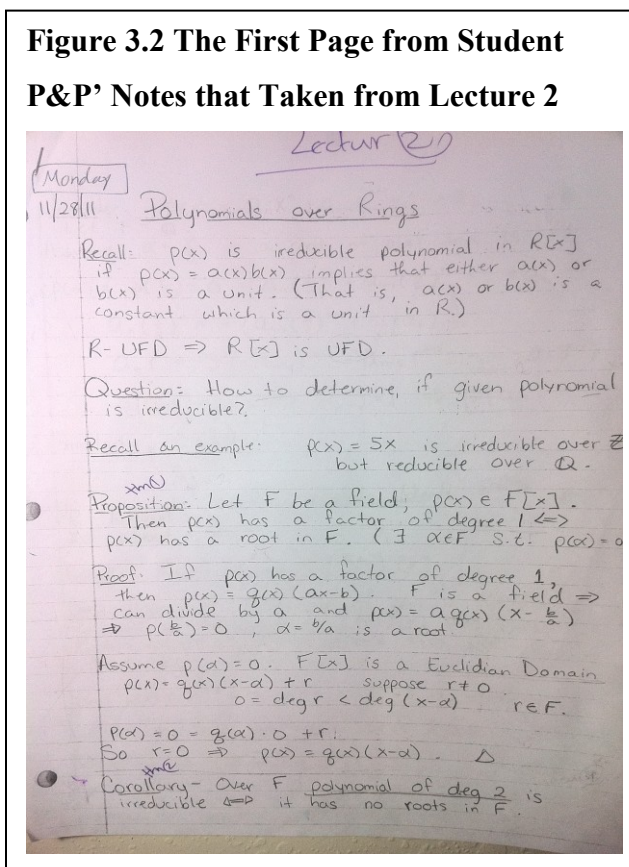 Figure 3.2 The First Page from Student
P&P’ Notes that Taken from Lecture 2
Lectur 2
Monday
11/28/11 Polynomials over Rings
Recall: p(x) is ireducible polynomial in R[x]
if p(x) = a(x)b(x) implies that either a(x) or
b(x) is a unit. (That is, a(x) or b(x) is a
constant which is a unit in R.)
R- UFD ⇒ R[x] is UFD.
Question: How to determine, if given polynomial
is irreducible?
Recall an example: p(x) = 5x is irreducible over ℤ
but reducible over ℚ.
Proposition: Let F be a field, p(x) ∈ F[x].
Then p(x) has a factor of degree 1 <=>
p(x) has a root in F. (∃ α∈F s.t. p(α) = 0
Proof: If p(x) has a factor of degree 1,
then p(x) = q(x) (ax-b). F is a field ⇒
can divide by a and p(x) = a q(x) (x - b/a)
⇒ p(b/a) = 0, α = b/a is a root
Assume p(α) = 0. F[x] is a Euclidian Domain
p(x) = q(x) (x-α) + r suppose r≠0
0 = deg r < deg (x-α) r∈F.
p(α) = 0 = q(α) · 0 + r.
So r=0 ⇒ p(x) = q(x) (x-α). △
Corollary - Over F polynomial of deg 2 is
irreducible <=> it has no roots in F.